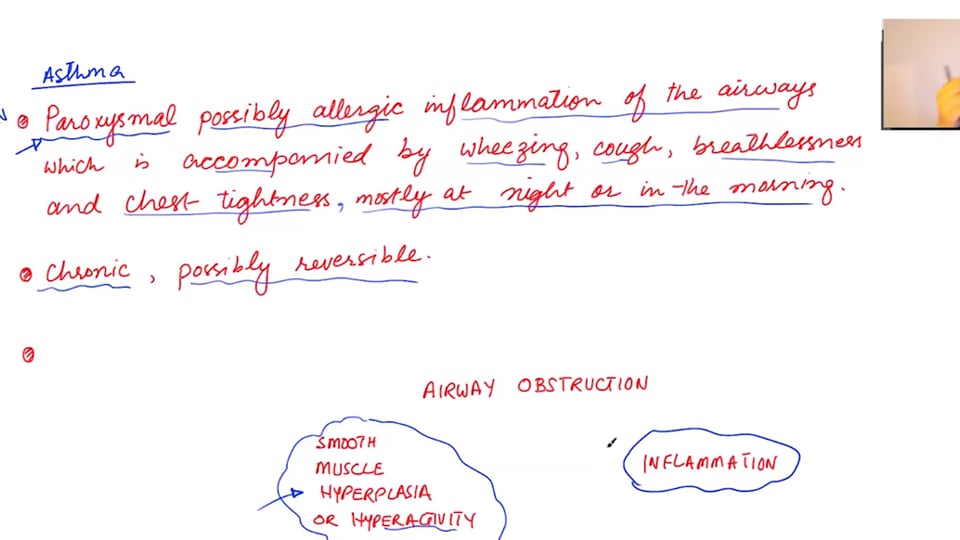 Asthma
Paroxysmal possibly allergic inflammation of the airways
which is accompanied by wheezing, cough, breathlessness
and chest tightness, mostly at night or in the morning.
Chronic, possibly reversible.
AIRWAY OBSTRUCTION
SMOOTH
MUSCLE
HYPERPLASIA
OR HYPERACTIVITY
INFLAMMATION